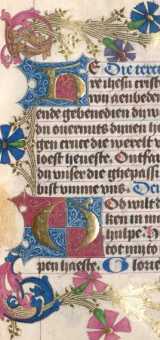 E Die terce
re ihesu criste
wy aenbeden
ende gebenedien dy w
du ouermits dynen h
gen cruce die werelt v
loest heueste. Ontfa
dy onser die ghepass
bist vmme vns. De
Ob wilt d
ken in m
hulpe. h
toe mi to
pen haeste. Glorie